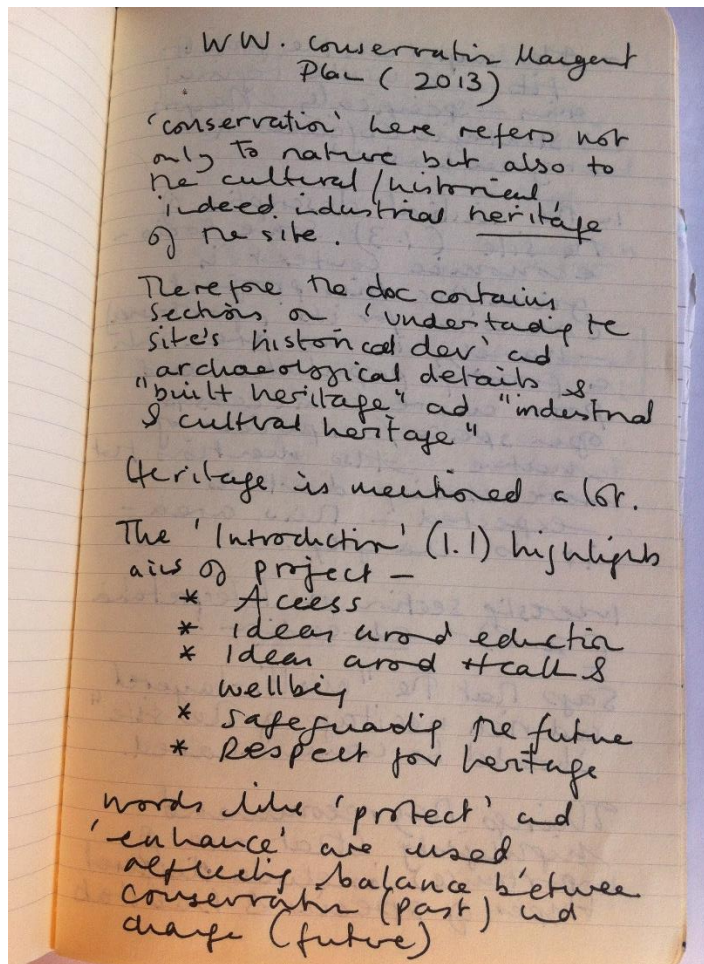 WW. Conservatin Margent
Plan (2013)
'conservation' here refers not
only to nature but also to
the cultural/historical
indeed industrial heritage
of the site.
Therefore the doc contains
sections on 'understadig the
site's historical dev' ad
"archaeological details &
"built heritage" ad "industrial
& cultural heritage"
Heritage is mentioned a lot.
The 'Introduction' (1.1) highlights
aims of project –
* Access
* Ideas arond eductin
* Ideas arond Health &
wellbeig
* Safeguardig the future
* Respect for heritage
words like 'protect' and
'enhance' are used
reflectig balance between
conservatin (past) and
change (future)